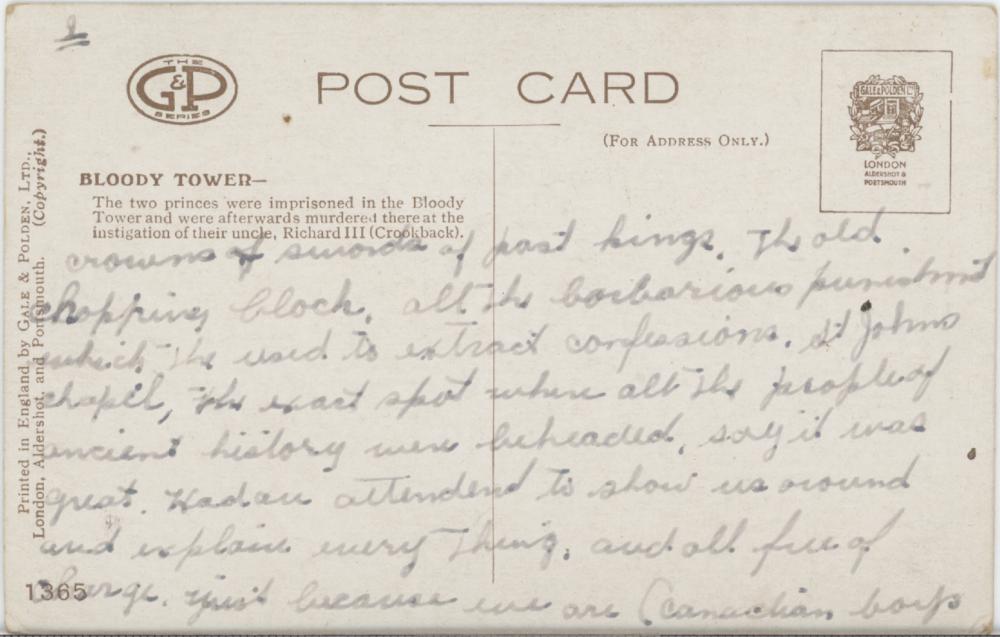 2
THE
G&P
SERIES
POST CARD
(FOR ADDRESS ONLY.)
GALE & POLDEN LTD
LONDON
ALDERSHOT &
PORTSMOUTH
BLOODY TOWER—
The two princes were imprisoned in the Bloody
Tower and were afterwards murdered there at the
instigation of their uncle, Richard III (Crookback).
Printed in England by GALE & POLDEN, LTD.,
London, Aldershot, and Portsmouth. (Copyright.)
crowns & swords of past kings. The old
chopping block, all the barbarious punishment
which the used to extract confessions. St Johns
chapel, the exact spot where all the people of
ancient history were beheaded, say it was
great. Had an attendend to show us around
and explain every thing, and all free of
charge. just because we are Canadian boys
1365